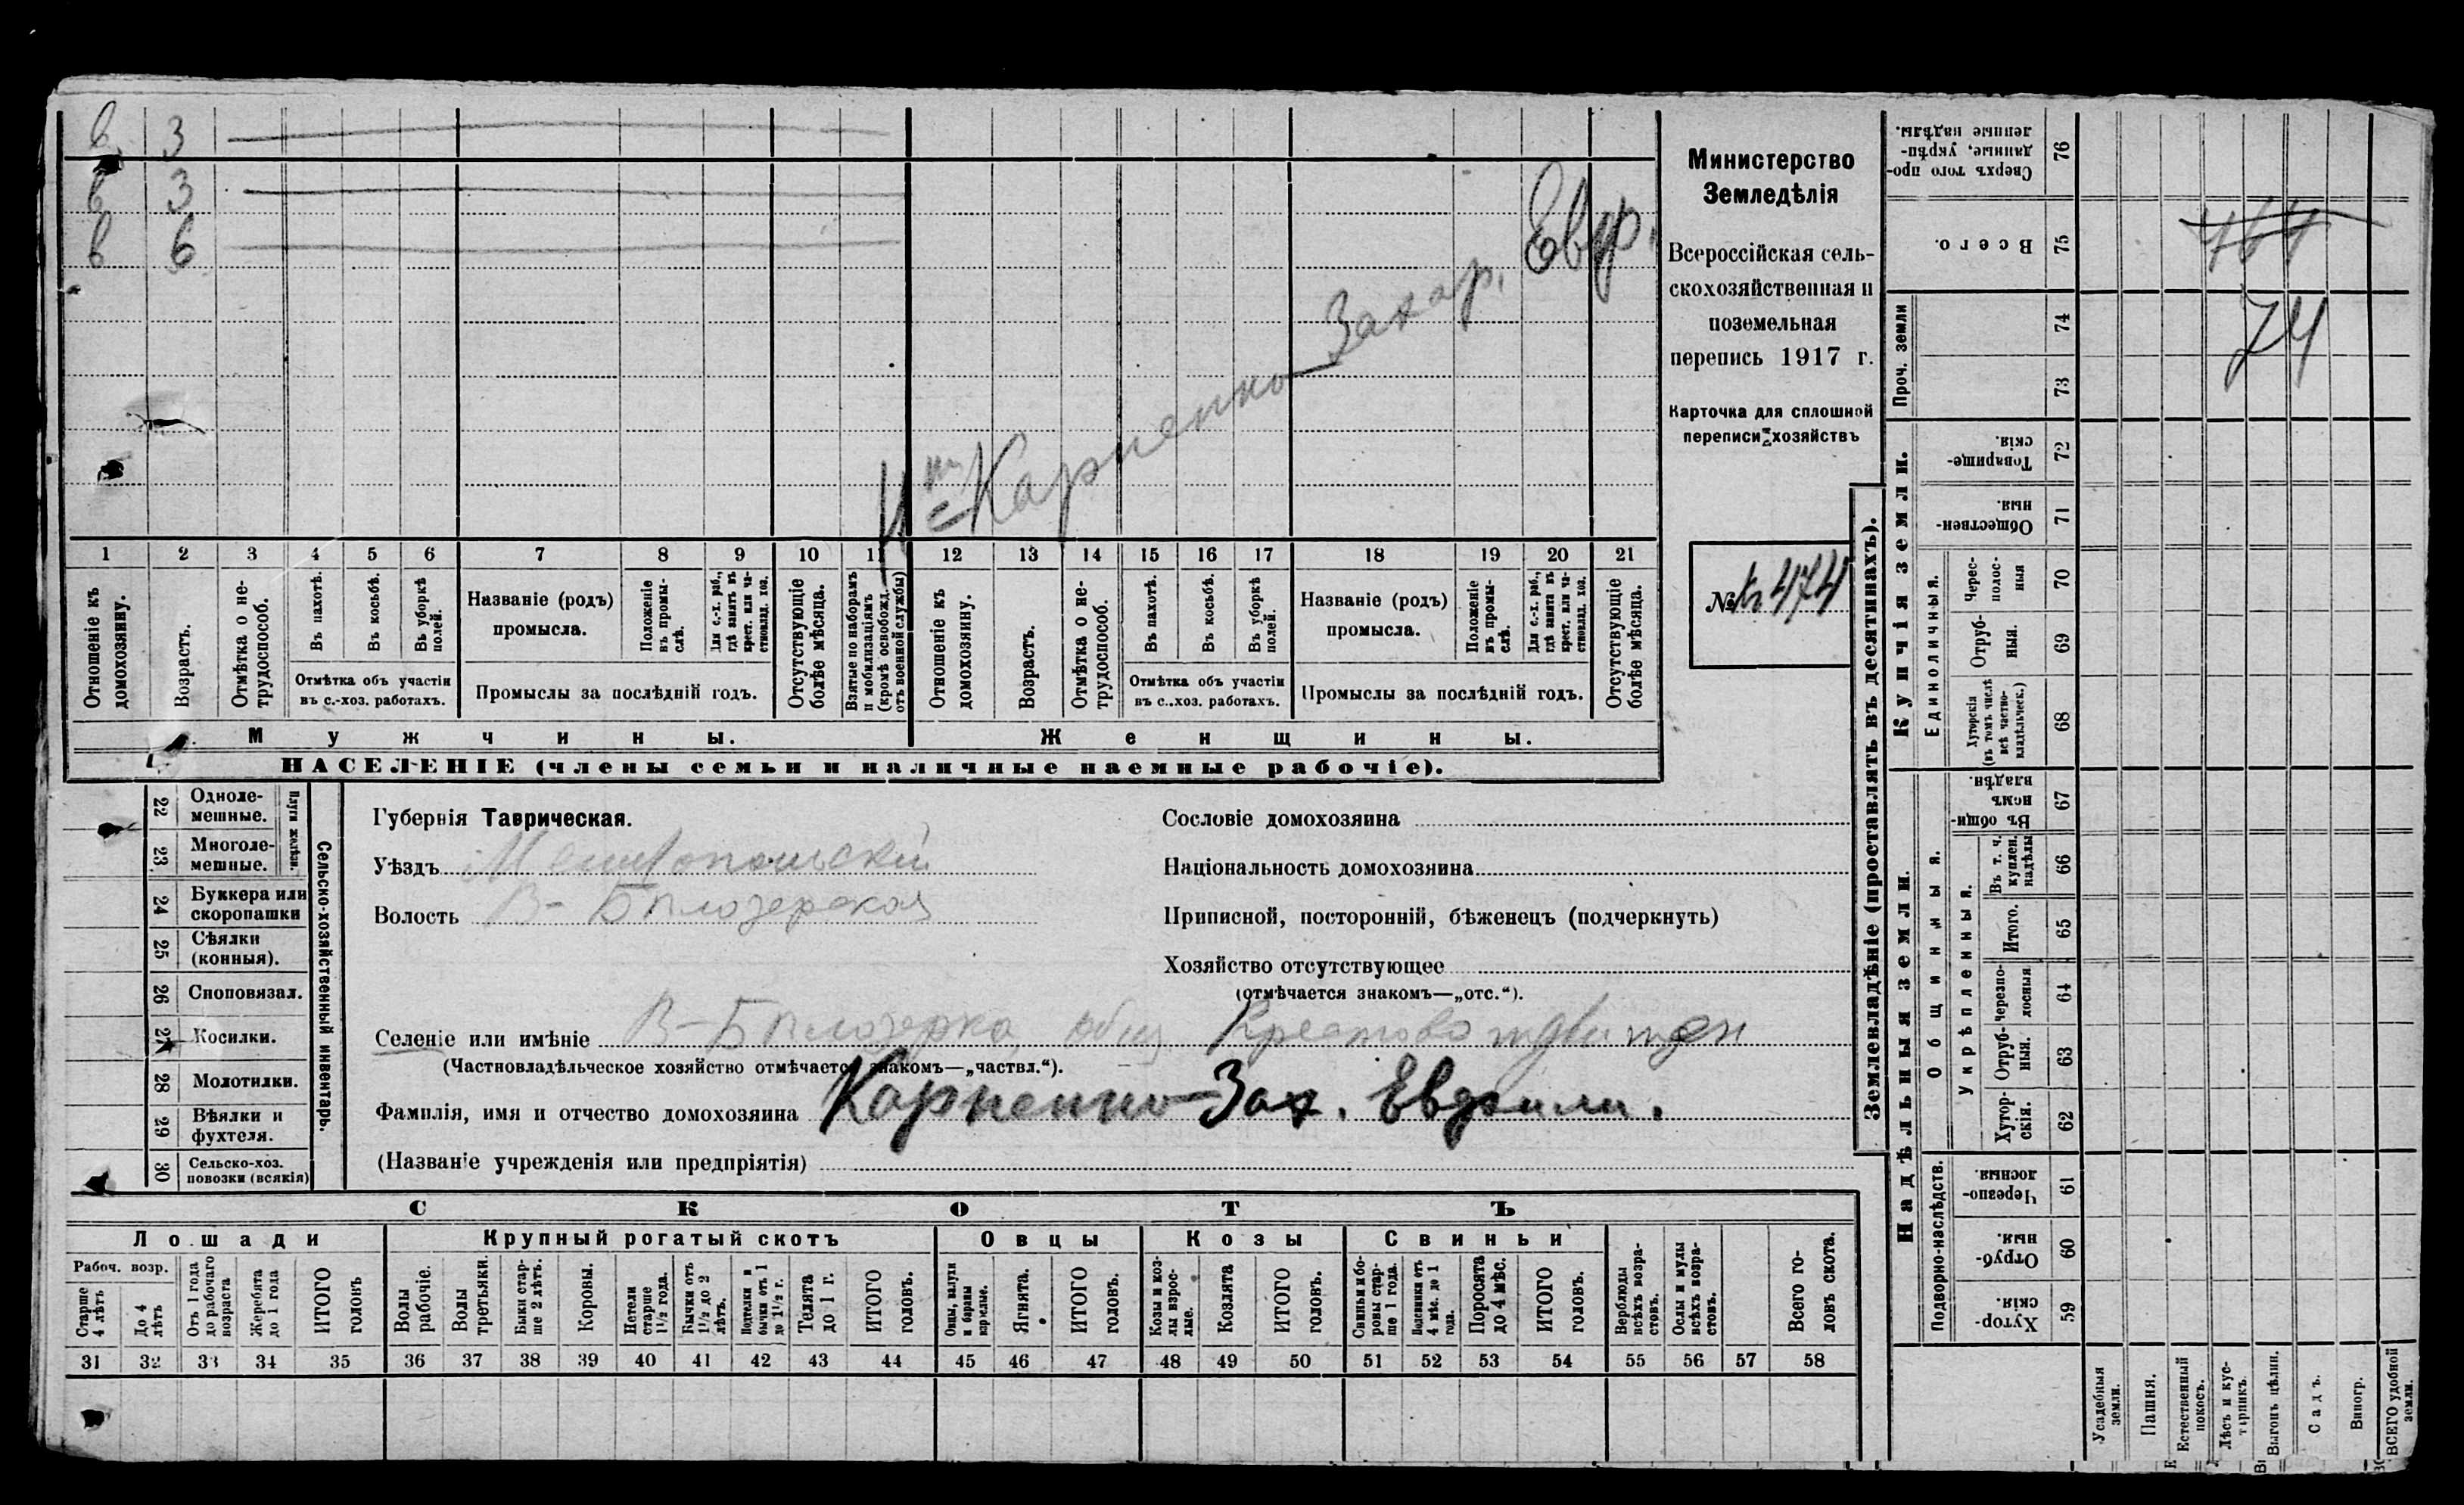 в 3
в 3
в 6
Карпенко Захар. Евф.
1 2 3 4 5 6 7 8 9 10 11 12 13 14 15 16 17 18 19 20 21
Отношеніе къ домохозяину.
Возрастъ.
Отмѣтка о не-
трудоспособ.
Въ пахотѣ.
Въ косьбѣ.
Въ уборкѣ полей.
Отмѣтка объ участіи
въ с.-хоз. работахъ.
Названіе (родъ)
промысла.
Положеніе въ промы-
слѣ.
Для с.-х. раб.,
гдѣ занятъ въ
крест. или ча-
стновлад. хоз.
Промыслы за послѣдній годъ.
Отсутствующіе
болѣе мѣсяца.
Взятые по наборамъ
и мобилизаціямъ
(кромѣ освобожд.
отъ военной службы)
Отношеніе къ
домохозяину.
Возрастъ.
Отмѣтка о не-
трудоспособ.
Въ пахотѣ.
Въ косьбѣ.
Въ уборкѣ
полей.
Отмѣтка объ участіи
въ с..хоз. работахъ.
Названіе (родъ)
промысла.
Положеніе
въ промы-
слѣ.
Для с.-х. раб.,
гдѣ занята въ
крест. или ча-
стновлад. хоз.
Промыслы за послѣдній годъ.
Отсутствующіе
болѣе мѣсяца.
Мужчины.
Женщины.
НАСЕЛЕНІЕ (члены семьи и наличные наемные рабочіе).
Министерство
Земледѣлія
Всероссійская сель-
скохозяйственная и
поземельная
перепись 1917 г.
Карточка для сплошной
переписи хозяйствъ
№ 474
22 Одноле-
мешные.
23 Многоле-
мешные.
Плуги желѣзн.
24 Буккера или
скоропашки
25 Сѣялки
(конныя).
26 Сноповязал.
27 Косилки.
28 Молотилки.
29 Вѣялки и
фухтеля.
30 Сельско-хоз.
повозки (всякія)
Сельско-хозяйственный инвентарь.
Губернія Таврическая.
Уѣздъ Мелитопольскій
Волость В-Бѣлозерская
Сословіе домохозяина
Національность домохозяина
Приписной, посторонній, бѣженецъ (подчеркнуть)
Хозяйство отсутствующее
(отмѣчается знакомъ—„отс.“).
Селеніе или имѣніе В-Бѣлозерка, общ Крестовоздвижен
(Частновладѣльческое хозяйство отмѣчается знакомъ—„частвл.“).
Фамилія, имя и отчество домохозяина Карпенко Зах. Евфили.
(Названіе учрежденія или предпріятія)
СКОТЪ
Лошади
Рабоч. возр.
Старше
4 лѣтъ
До 4
лѣтъ
Отъ 1 года
до рабочаго
возраста
Жеребята
до 1 года
ИТОГО
головъ
Крупный рогатый скотъ
Волы
рабочіе.
Волы
третьяки.
Быки стар-
ше 2 лѣтъ.
Коровы.
Нетели
старше
1½ года.
Бычки отъ
1½ до 2
лѣтъ.
Подтелки и
бычки отъ 1
до 1½ г.
Телята
до 1 г.
ИТОГО
головъ.
Овцы
Овцы, валухи
и бараны
взрослые.
Ягнята.
ИТОГО
головъ.
Козы
Козы и коз-
лы взрос-
лые.
Козлята
ИТОГО
головъ.
Свиньи
Свиньи и бо-
ровы стар-
ше 1 года.
Подсвинки отъ
4 мѣс. до 1
года.
Поросята
до 4 мѣс.
ИТОГО
головъ.
Верблюды
всѣхъ возра-
стовъ.
Ослы и мулы
всѣхъ возра-
стовъ.
Всего го-
ловъ скота.
31 32 33 34 35 36 37 38 39 40 41 42 43 44 45 46 47 48 49 50 51 52 53 54 55 56 57 58
Землевладѣніе (проставлять въ десятинахъ).
Сверхъ того про-
данные, укрѣп-
ленные надѣлы.
76
Всего.
75
464
74
Проч. земли
74
73
Купчія земли.
Товарище-
скія.
72
Обществен-
ныя.
71
Единоличныя.
Черес-
полос-
ныя
70
Отруб-
ныя.
69
Хуторскія
(въ томъ числѣ
всѣ частно-
владѣльческ.)
68
Надѣльныя земли.
Общинныя.
Въ общин-
номъ
владѣн.
67
Укрѣпленныя.
Въ т. ч.
куплен.
надѣлы
66
Итого.
65
Черезпо-
лосныя
64
Отруб-
ныя.
63
Хутор-
скія.
62
Подворно-наслѣдств.
Черезпо-
лосныя.
61
Отруб-
ныя.
60
Хутор-
скія.
59
Усадебныя
земли.
Пашня.
Естественный
покосъ.
Лѣсъ и кус-
тарникъ.
Выгонъ цѣлин.
Садъ.
Виногр.
ВСЕГО удобной
земли.